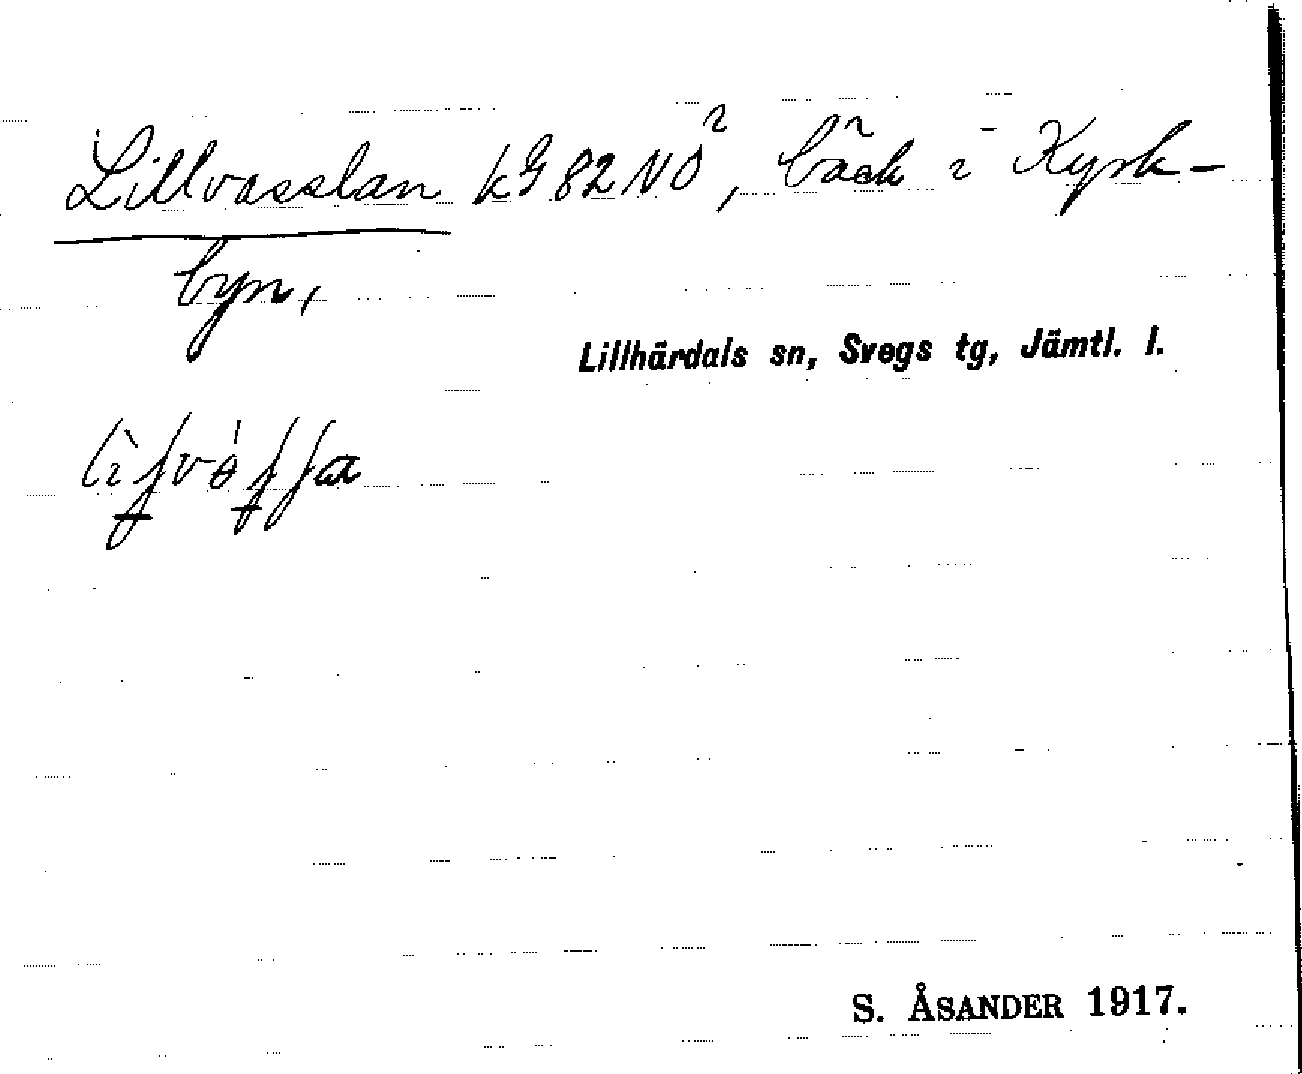 Lillvasslan kG 82 NO², bäck i Kyrk-
byn,
Lillhärdals sn, Svegs tg, Jämtl. l.
S. ÅSANDER 1917.